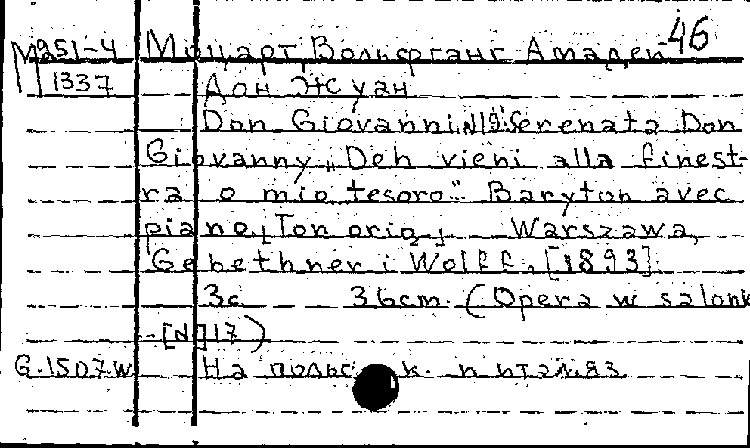 46
М251-4 Моцарт, Вольфганг Амадей
1337 Дон Жуан
Don Giovanni. N 19. Serenata Don
Giovanny „Deh vieni alla finest-
ra o mio tesoro." Baryton avec
piano, Ton orig. Warszawa,
Gebethner i Wolff, [1893].
3c 36cm (Opera w salonie
[N]17)
G.1507.W. На польск. и итал. яз.